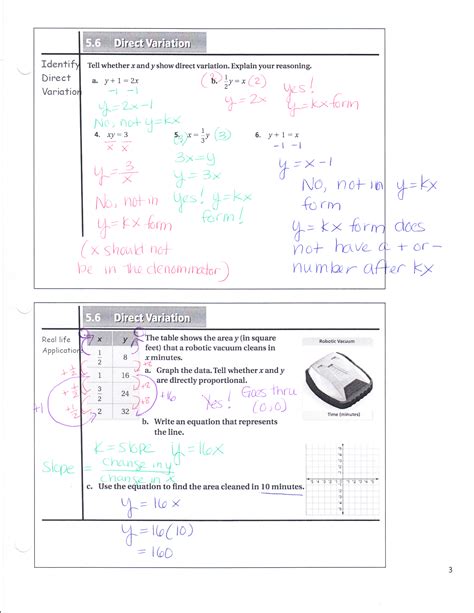 5.6 Direct Variation
Identify
Direct
Variation
Tell whether x and y show direct variation. Explain your reasoning.
a. y + 1 = 2x
-1 -1
y = 2x - 1
No, not y = kx
(2) b. 1/2 y = x (2)
y = 2x
yes!
y = kx form
4. xy = 3
x x
y = 3/x
No, not in
y = kx form
(x should not
be in the denominator)
5. (3) x = 1/3 y (3)
3x = y
y = 3x
yes! y = kx
form!
6. y + 1 = x
-1 -1
y = x - 1
No, not in y = kx
form
y = kx form does
not have a + or -
number after kx
5.6 Direct Variation
Real life
Application
x y
1/2 8
1 16
3/2 24
2 32
+1/2
+1/2
+1/2
+1
+8
+8
+8
+16
The table shows the area y (in square
feet) that a robotic vacuum cleans in
x minutes.
a. Graph the data. Tell whether x and y
are directly proportional.
Yes! Goes thru
(0,0)
b. Write an equation that represents
the line.
K = slope y = 16x
Slope = change in y
change in x
c. Use the equation to find the area cleaned in 10 minutes.
y = 16x
y = 16(10)
= 160
Robotic Vacuum
Time (minutes)
3